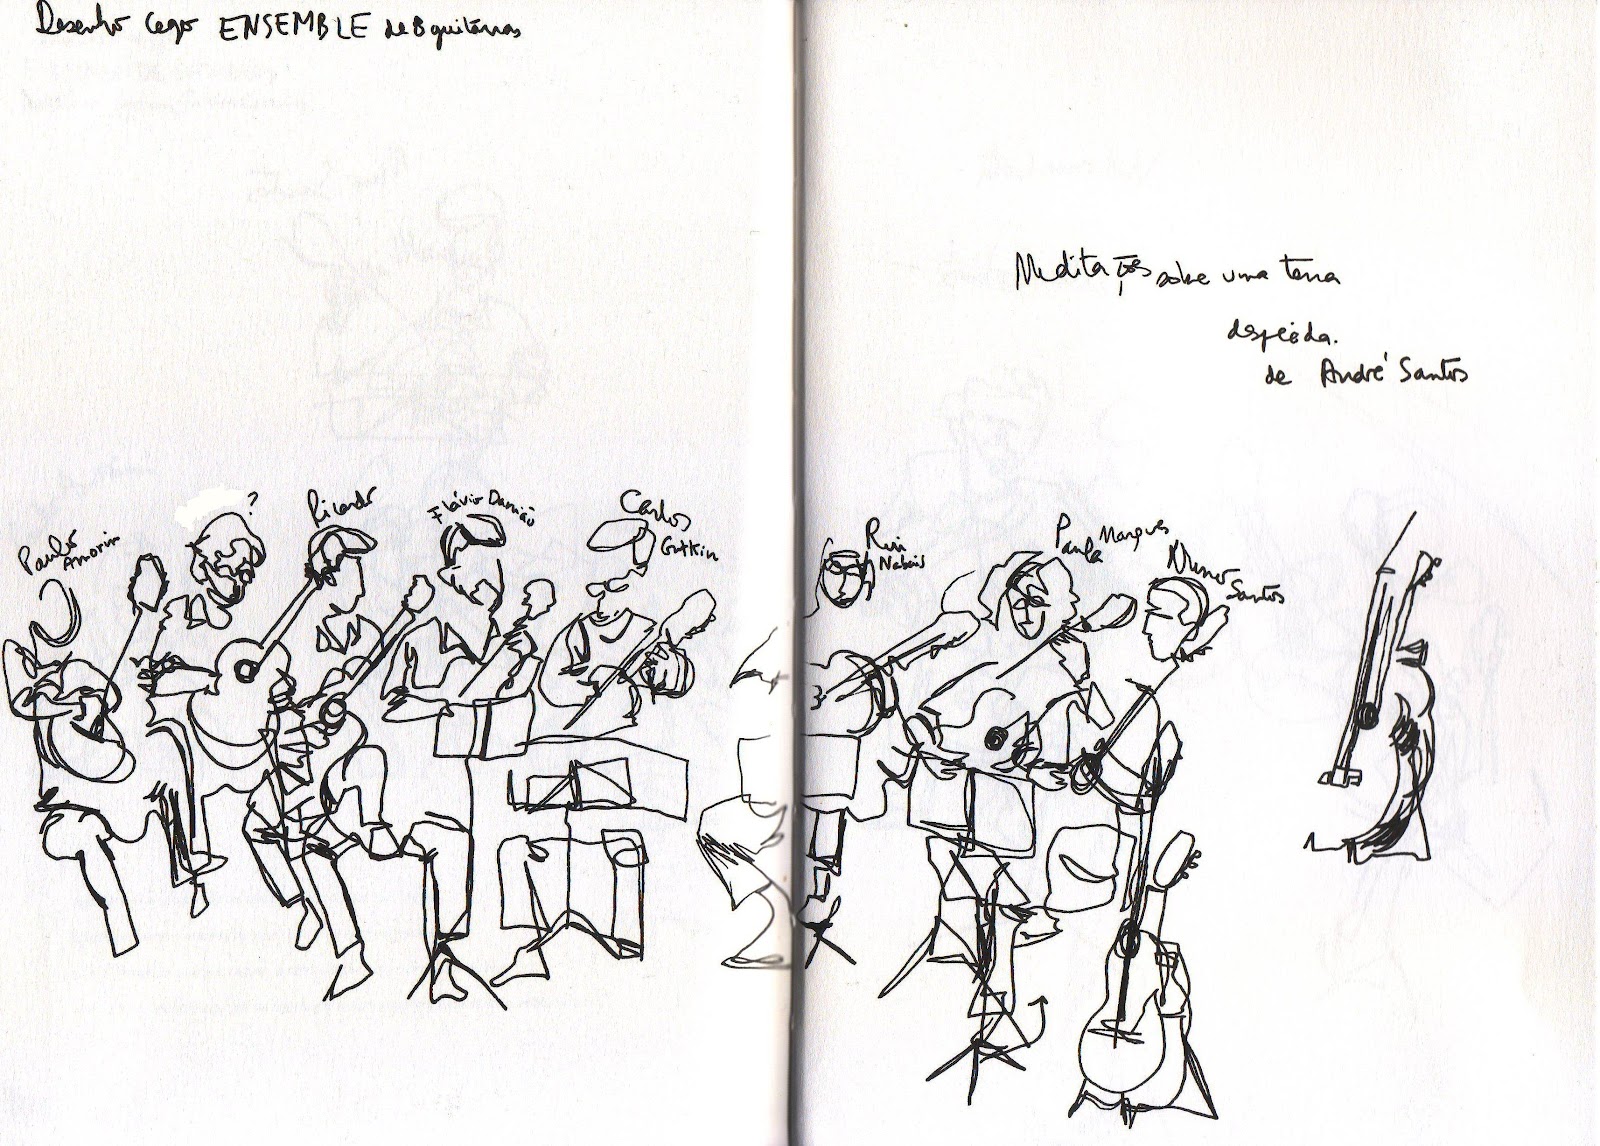 Desenho cego ENSEMBLE de 8 guitarras
Meditações sobre uma terra
despida.
de André Santos
Paulo
Amorim
?
Ricardo
Flávio Damião
Carlos
Gutkin
Rui
Paula Marques
Nuno
Santos